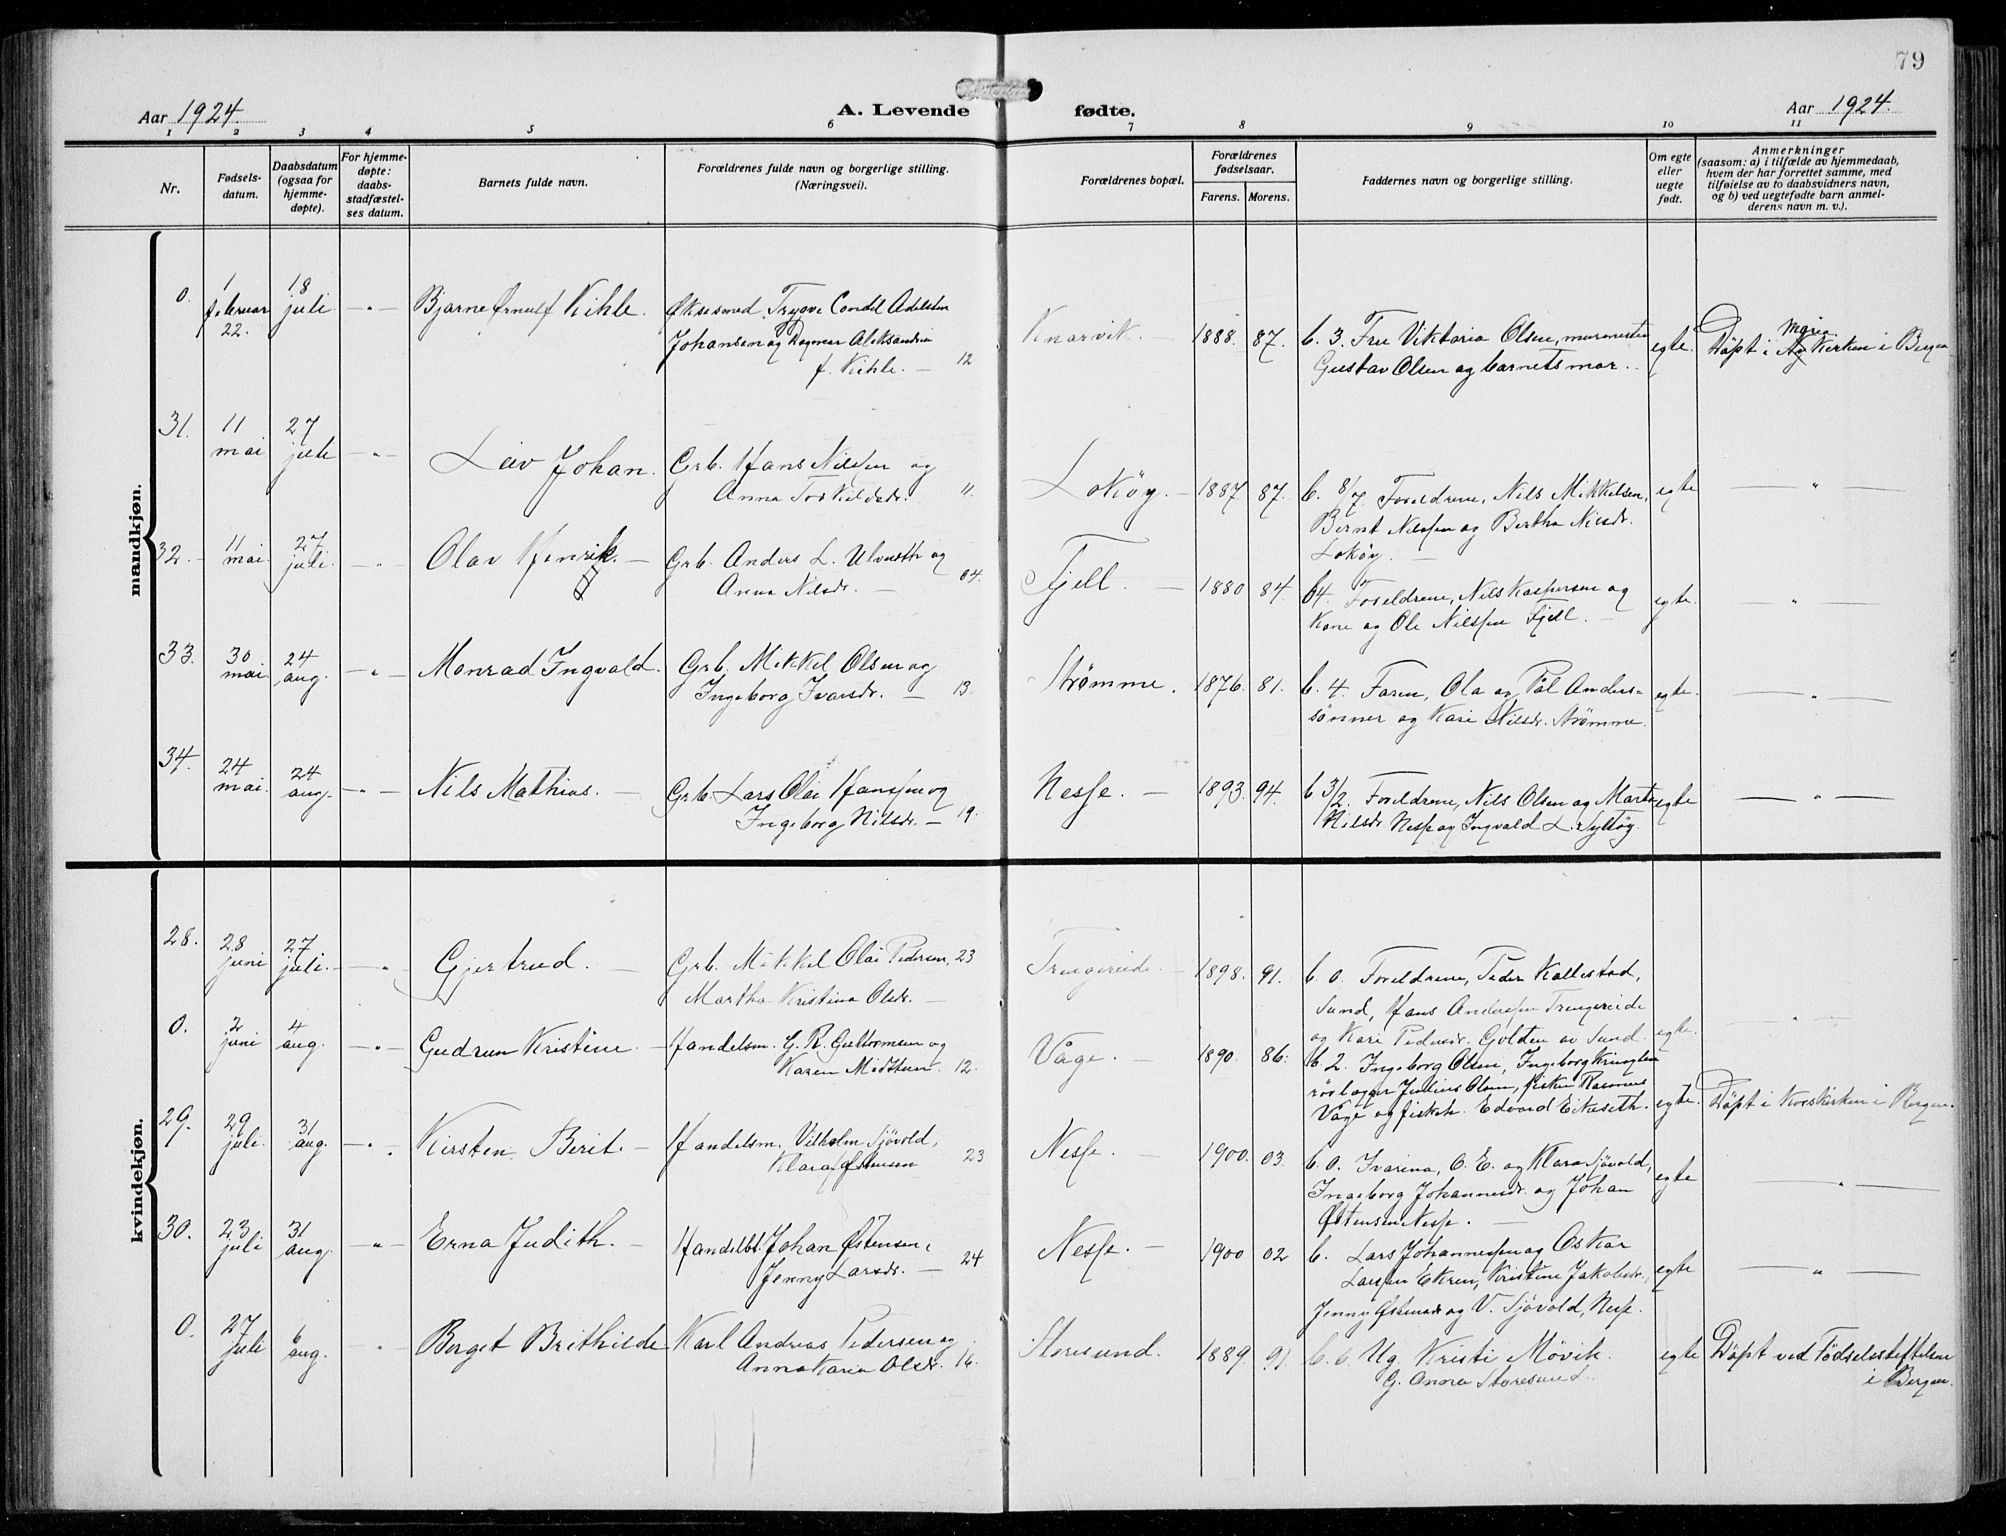 79
Aar 1924.
A. Levende fødte.
Aar 1924.
1 2 3 4 5 6 7 8 9 10 11
Nr.
Fødsels-
datum.
Daabsdatum
(ogsaa for
hjemme-
døpte).
For hjemme-
døpte:
daabs-
stadfæstel-
ses datum.
Barnets fulde navn.
Forældrenes fulde navn og borgerlige stilling.
(Næringsvei).
Forældrenes bopæl.
Forældrenes
fødselsaar.
Farens. Morens.
Faddernes navn og borgerlige stilling.
Om egte
eller
uegte
født.
Anmerkninger
(saasom: a) i tilfælde av hjemmedaab,
hvem der har forrettet samme, med
tilføielse av to daabsvidners navn,
og b) ved uegtefødte barn anmel-
derens navn m. v.).
mandkjøn.
0. 1 februar 22. 18 juli - " - Bjarne Ørnulf Kihle. Øksesmed Trygve Condil Adelsten
Johansen og Dagmar Aleksandra
f. Kihle. — 12
Knarvik. — 1888. 87. b. 3. Fru Viktoria Olsen, murmester
Gustav Olsen og barnets mor. egte. Döpt i Maria Kirken i Bergen
31. 11 mai 27 juli - " - Leiv Johan. Grb. Hans Nilsen og
Anna Torkildsdr. 11.
Lokøy. — 1887 87. b. 8/7. Foreldrene, Nils Mikkelsen,
Bernt Nilsen og Bertha Nilsdr.
Lokøy. — egte — " —
32. 11 mai 27 juli. - " Olav Henrik. — Grb. Anders L. Ulveseth og
Anna Nilsdr. — 04.
Fjell. — 1880 84. b4. Foreldrene, Nils Kaspersen og
Kone og Ole Nilsen Fjell. — egte. — " —
33. 30 mai 24 aug. - " Monrad Ingvald. Grb. Mikkel Olsen og
Ingeborg Ivarsdr. — 13.
Strømme. 1876. 81. b. 4. Faren, Ola og Pål Anders=
sønner og Kari Nilsdr. Strømme. egte. — " —
34. 24 mai. 24 aug. - " - Nils Mathias. — Grb. Lars Olai Hansen og
Ingeborg Nilsdr. — 19.
Nesse. — 1893. 94. b 3/2. Foreldrene, Nils Olsen og Marta
Nilsdr. Nesse og Ingvald L. Syltøy. egte — " —
kvindekjøn.
28. 28 juni 27 juli. - " Gjertrud. — Grb. Mikkel Olai Pedersen, 23
Martha Kristina Olsdr. —
Trengereide. — 1898. 91. b. 0. Foreldrene, Peder Kallestad,
Sund, Hans Andersen Trengereide
og Kari Pedersdr. Golten av Sund. egte. "
0. 2 juni 4 aug. - " - Gudrun Kristine. — Handelsm. G. R. Guttormsen og
Karen Midttun. 12.
Våge. — 1890. 86. b. 2. Ingeborg Olsen, Ingeborg Kringlen
rörlegger Julius Olsen, fisker Rasmus
Våge og fiskeh. Edvard Eikeseth. egte. Döpt i Korskirken i Bergen.
29. 29 juli. 31 aug. - " . Kirsten Berit. — Handelsm. Vilhelm Sjövold,
Klara Østensen 23
Nesse. — 1900. 03. b. 0. Ivarina, O. E. og Klara Sjövold,
Ingeborg Johannesdr. og Johan
Østensen Nesse. — egte — " —
30. 23 juli 31 aug. - " - Erna Judith. — Handelbt. Johan Østensen,
Jenny Larsdr. — 24
Nesse. — 1900 02 b. Lars Johannessen og Oskar
Larsen Ekren, Kristine Jakobsdr.,
Jenny Østensdr og V. Sjövold, Nesse. egte — " —
0. 27 juli 6 aug. - " Borget Brithilde Karl Andreas Pedersen og
Anna Karia Olsdr. 14.
Storesund. 1889. 91 b. 6. Ug. Kristi Mövik.
G. Anna Storesund. egte Döpt ved Födselsstiftelsen
i Bergen.